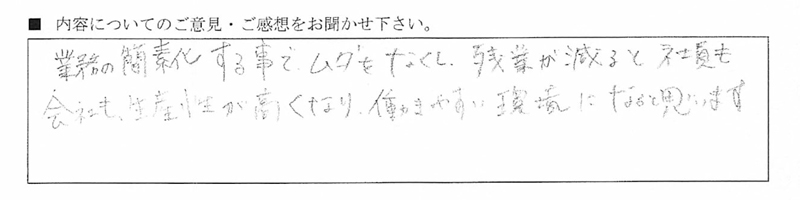 ■ 内容についてのご意見・ご感想をお聞かせ下さい。
業務の簡素化する事で、ムダをなくし、残業が減ると社員も
会社も、生産性が高くなり、働きやすい環境になると思います